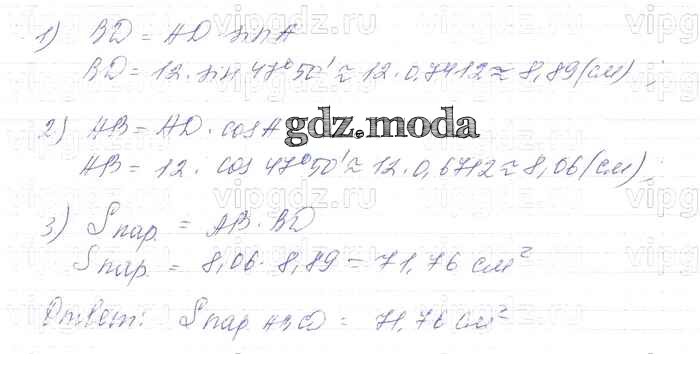 1) BD = AD sin A
BD = 12 · sin 47°50' ≈ 12 · 0,7412 ≈ 8,89 (см) ;
2) AB = AD · cos A
gdz.moda
AB = 12 · cos 47°50' ≈ 12 · 0,6712 ≈ 8,06 (см) ;
3) Sпар. = AB · BD
Sпар. = 8,06 · 8,89 = 71,76 см²
Ответ: Sпар ABCD = 71,76 см²